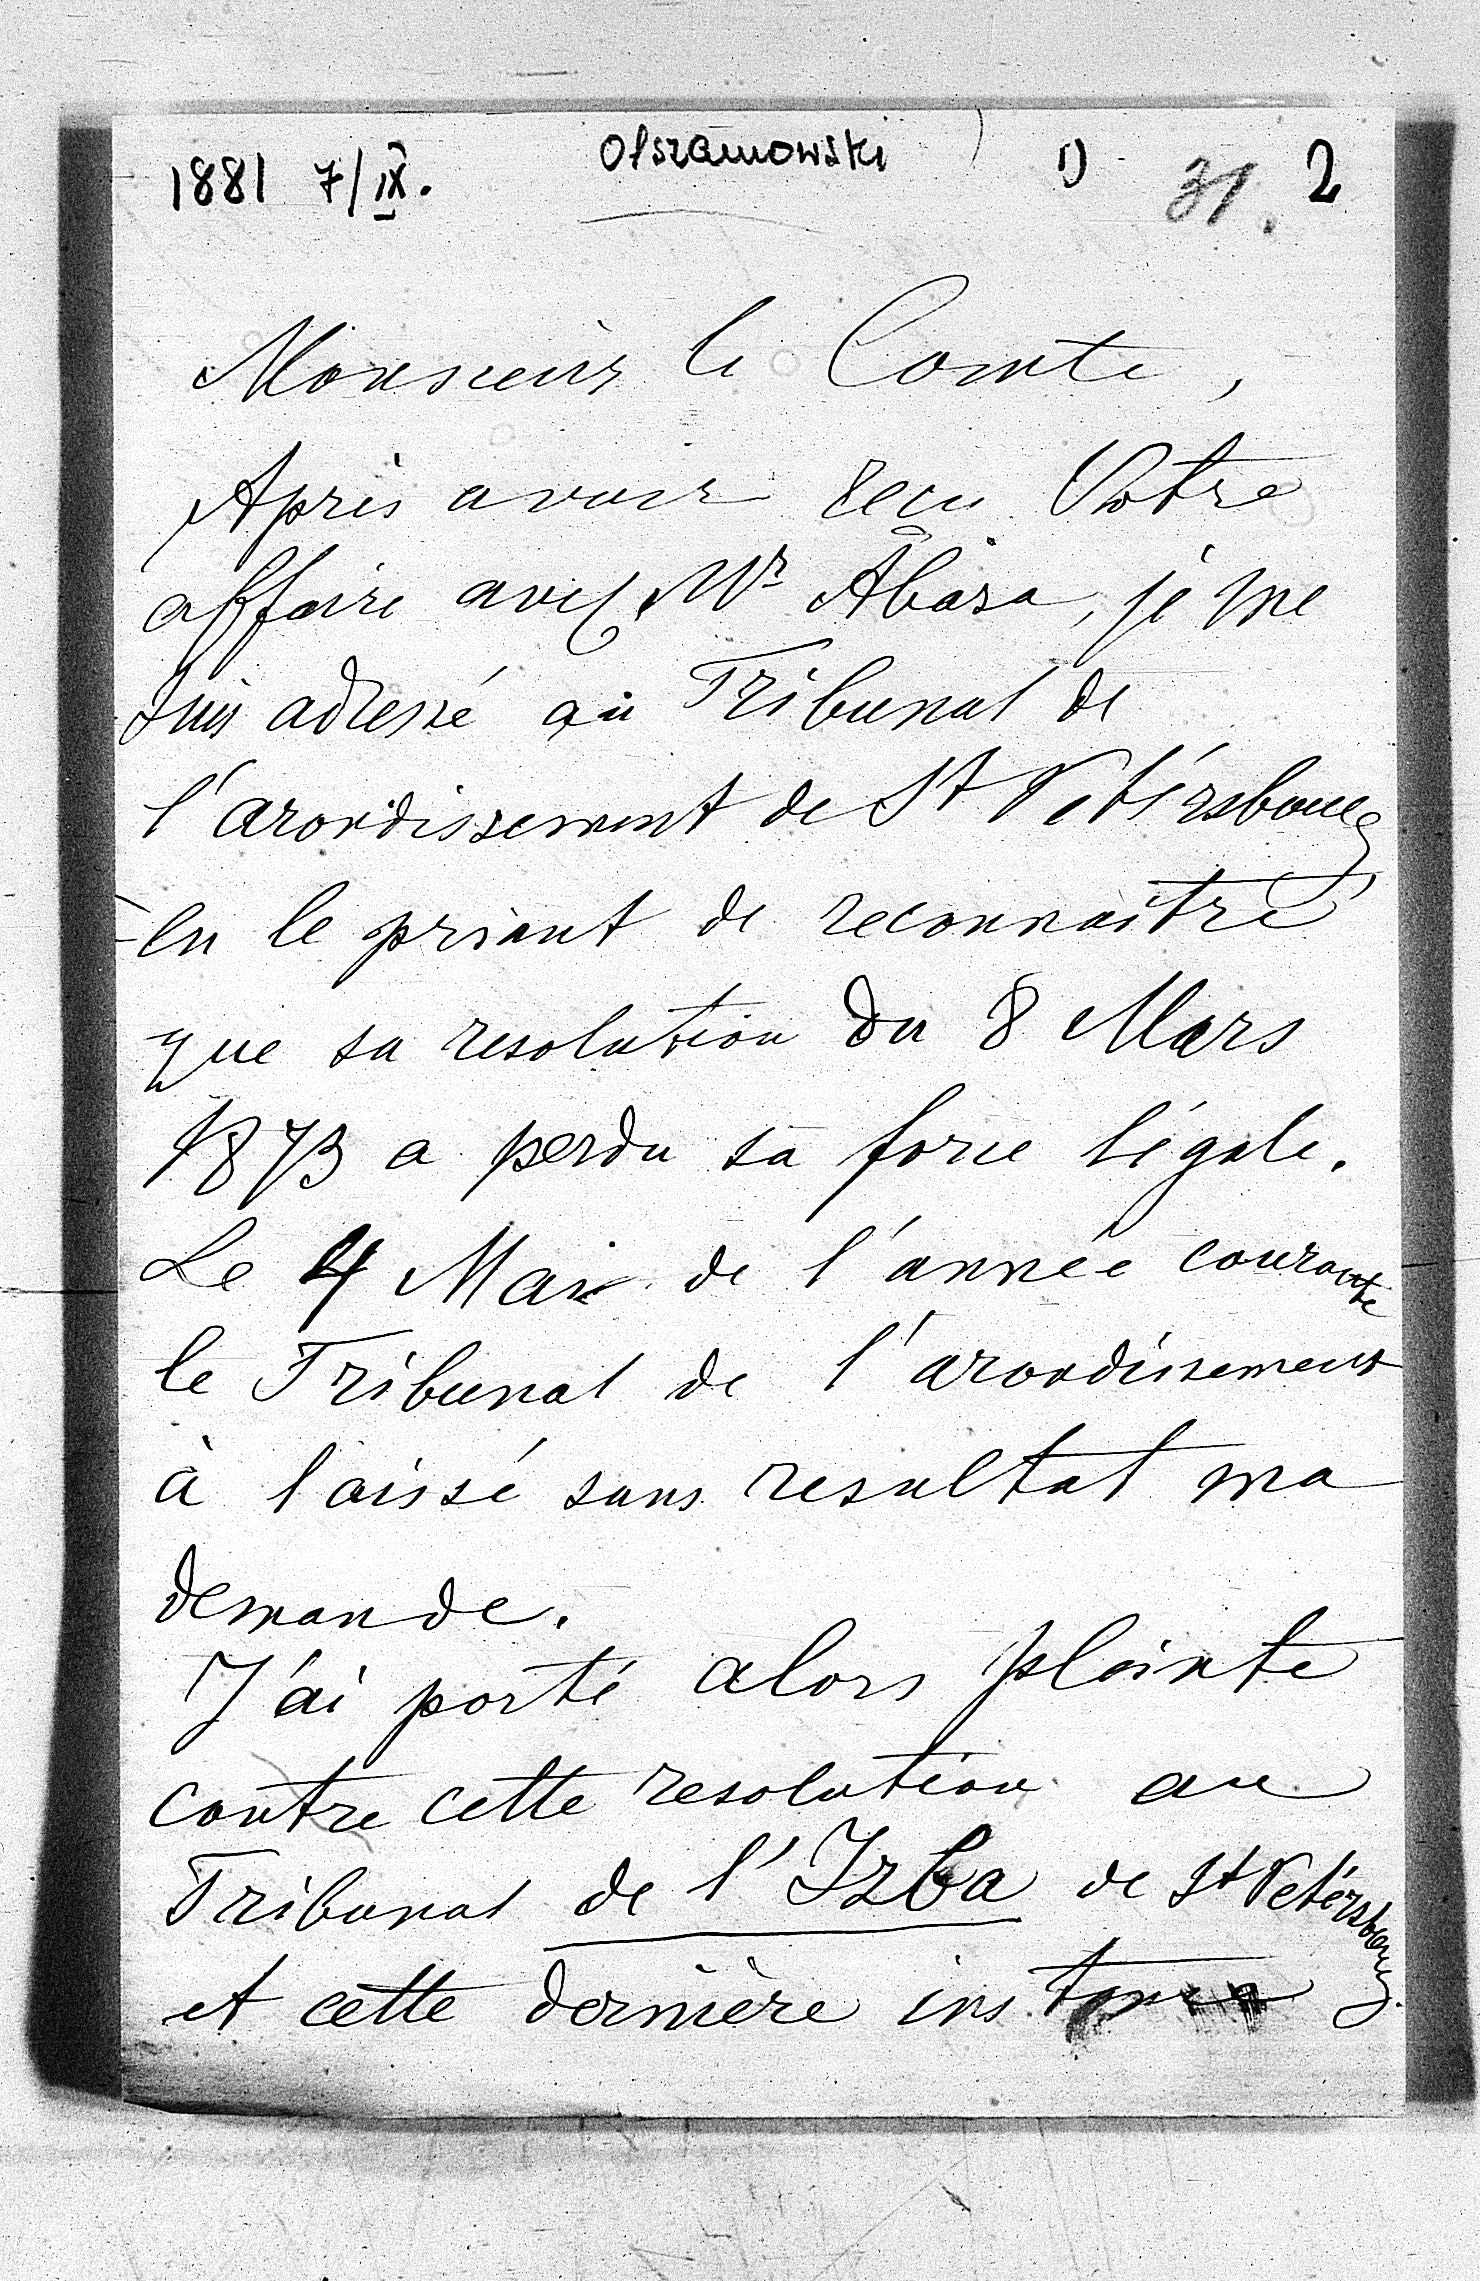 1881 7/IX. Olszamowski 1) 31. 2
Monsieur le Comte,
Après avoir reçu Votre
affaire avec Mr Abasa, je me
suis adressé au Tribunal de
l'arondissement de St Petérsbourg
en le priant de reconnaître
que sa resolution du 8 Mars
1873 a perdu sa force légale.
Le 4 Mai de l'année courante
le Tribunal de l'arondissement
à laissé sans resultat ma
demande.
J'ai porté alors plainte
contre cette resolution au
Tribunal de l'Izba de St Petérsbourg
et cette dernière instance